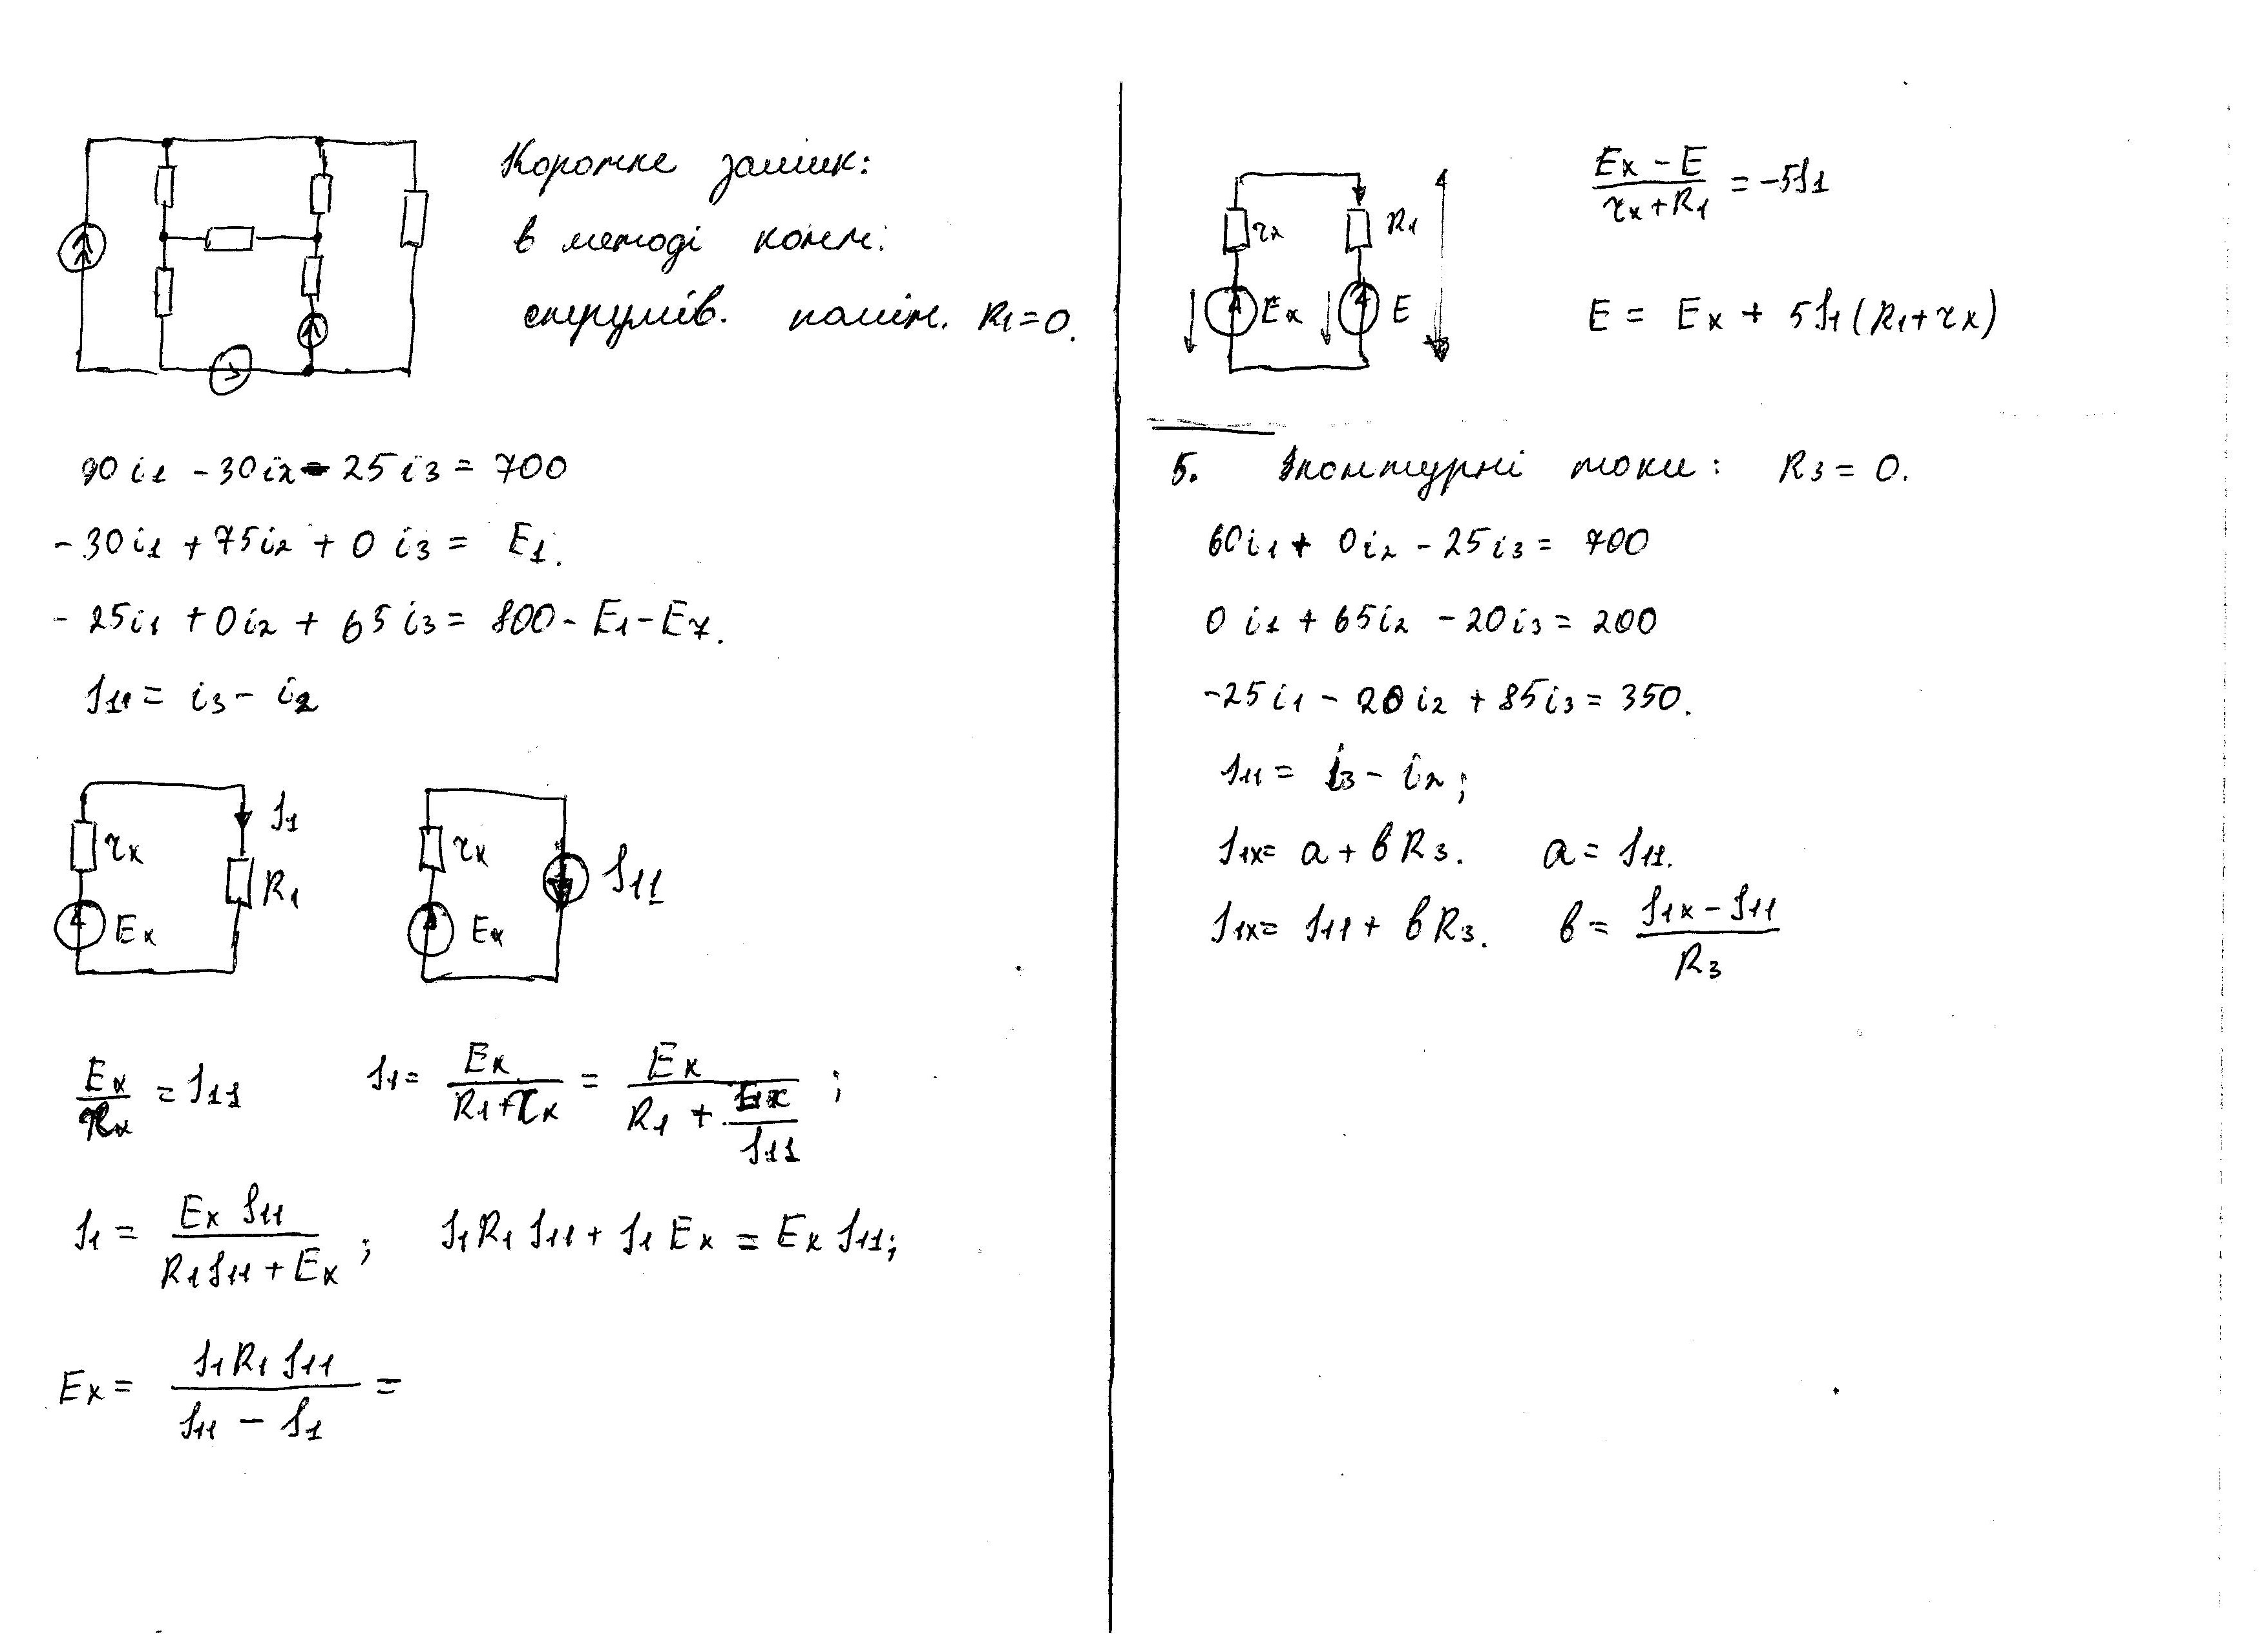 Коротке замик:
в методі конт.
струмів. помін. R1=0.
90 i1 - 30i2 - 25 i3 = 700
- 30i1 + 75i2 + 0 i3 = E1.
- 25i1 + 0i2 + 65 i3 = 800 - E1 - E7.
I11 = i3 - i2
rx I1 R1 Ex
rx I11 Ex
Ex/rx = I11 I1 = Ex/(R1+rx) = Ex/(R1 + Ex/I11) ;
I1 = Ex I11/(R1 I11 + Ex) ; I1 R1 I11 + I1 Ex = Ex I11;
Ex = I1 R1 I11/(I11 - I1) =
rx R1 Ex E
(Ex - E)/(rx + R1) = -5I1
E = Ex + 5I1 (R1 + rx)
5. Контурні токи : R3 = 0.
60i1 + 0i2 - 25i3 = 700
0 i1 + 65i2 - 20i3 = 200
-25i1 - 20i2 + 85i3 = 350.
I11 = i3 - i2 ;
I1x = a + b R3. a = I11.
I1x = I11 + b R3. b = (I1x - I11)/R3